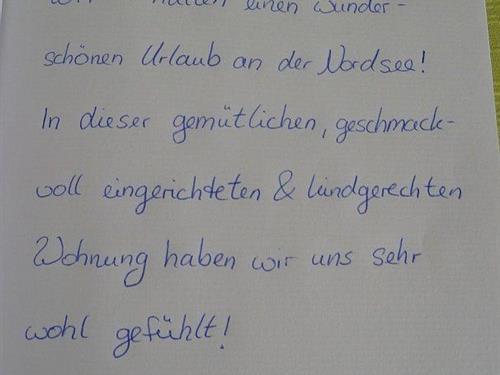 Wir hatten einen wunder-
schönen Urlaub an der Nordsee!
In dieser gemütlichen, geschmack-
voll eingerichteten & kindgerechten
Wohnung haben wir uns sehr
wohl gefühlt!